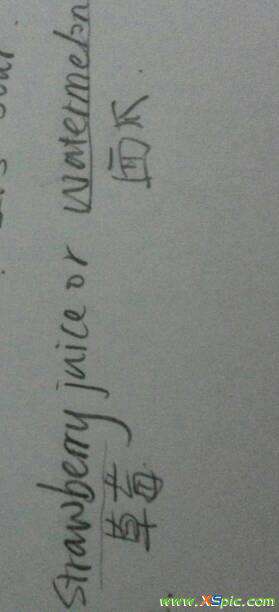 Strawberry juice or watermelon
草莓 面瓜.
www.XSpic.com